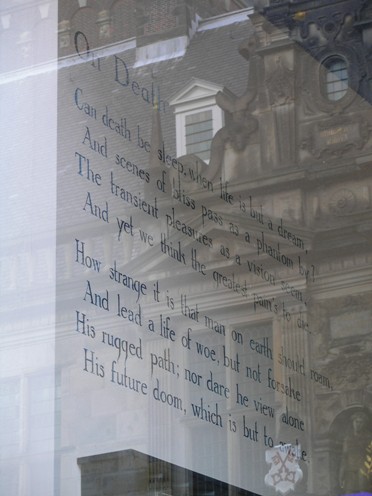 On Death
Can death be sleep, when life is but a dream,
And scenes of bliss pass as a phantom by?
The transient pleasures as a vision seem,
And yet we think the greatest pain's to die.
How strange it is that man on earth should roam,
And lead a life of woe, but not forsake
His rugged path; nor dare he view alone
His future doom, which is but to awake.